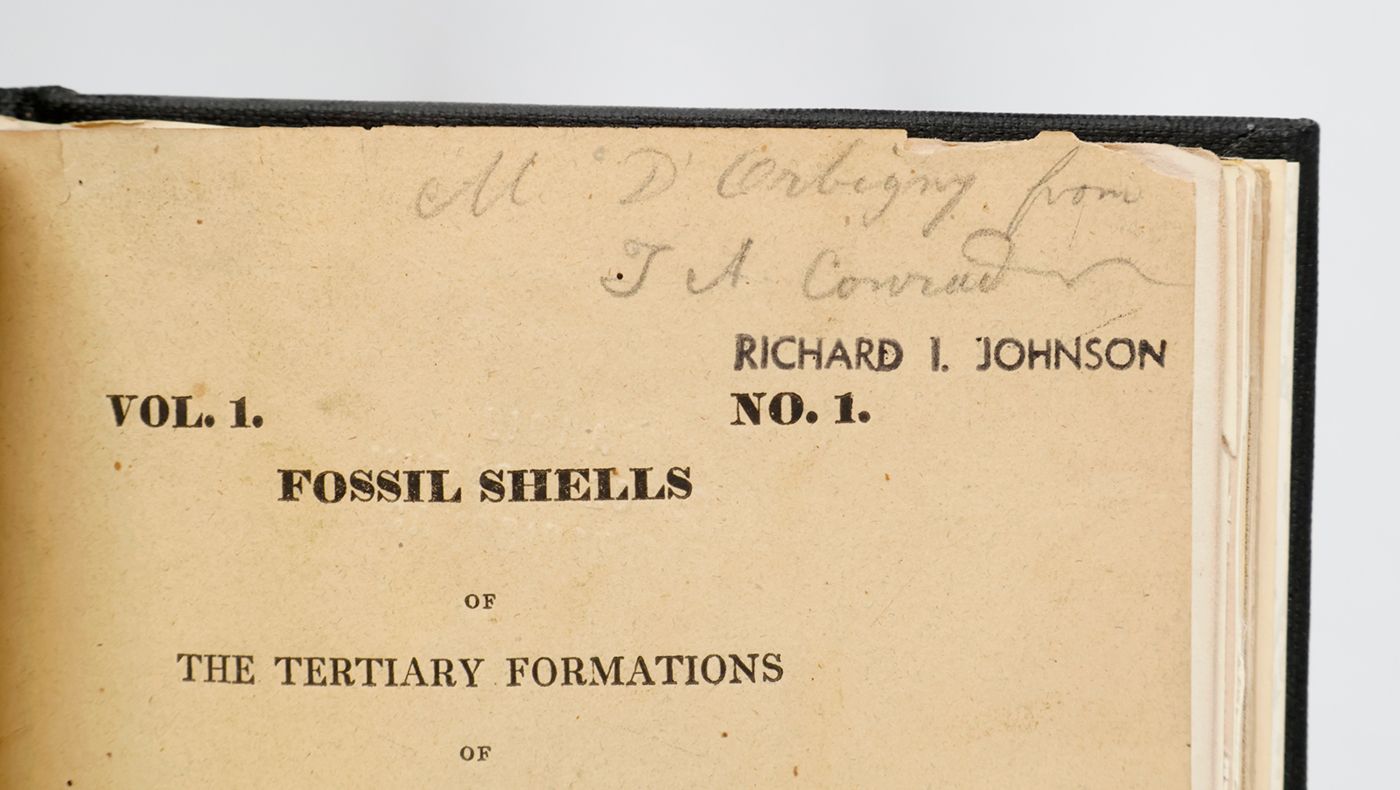 M. D'Orbigny from
T A Conrad
RICHARD I. JOHNSON
VOL. 1. NO. 1.
FOSSIL SHELLS
OF
THE TERTIARY FORMATIONS
OF